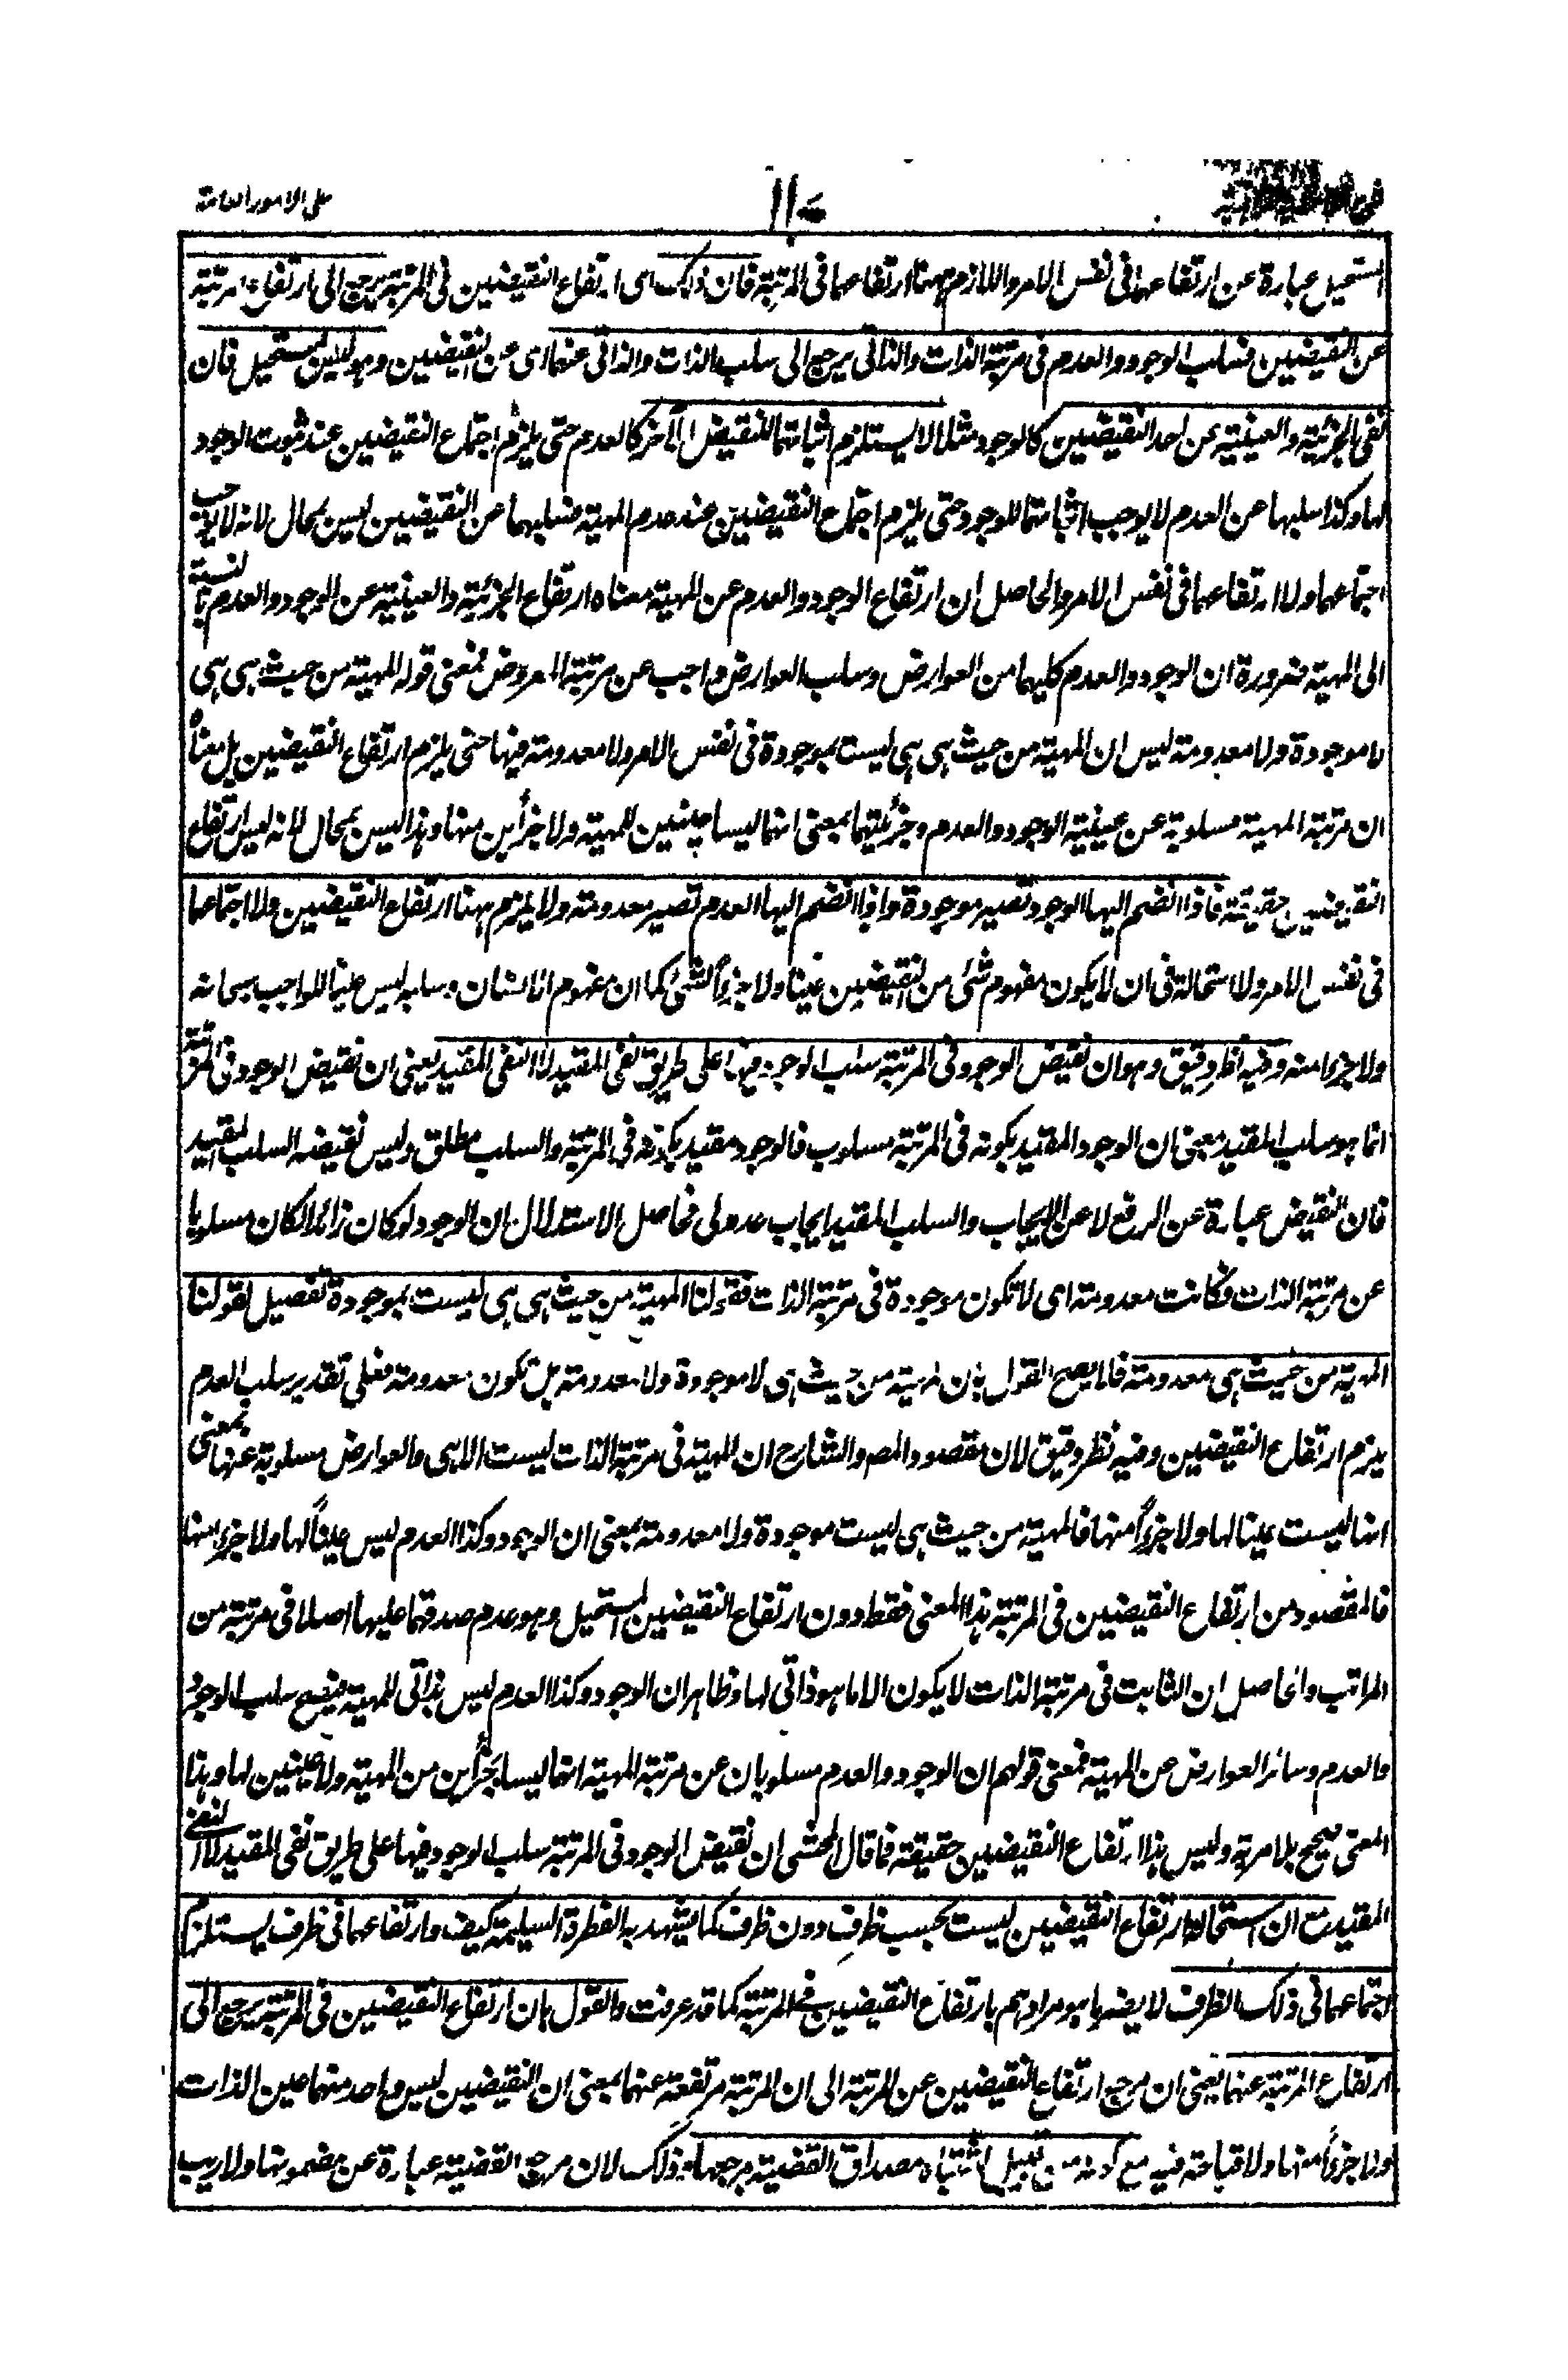 على الامور العامة
١١٠
المستحيل عبارة عن ارتفاعهما فى نفس الامر واللازم ههنا ارتفاعهما فى المرتبة فان ذلك اى ارتفاع النقيضين فى المرتبة يرجع الى ارتفاع المرتبة
عن النقيضين فسلب الوجود والعدم فى مرتبة الذات والذاتى يرجع الى سلب الذات والذاتى عنهما اى عن النقيضين وهو ليس بمستحيل فان
نفى الجزئية والعينية عن احد النقيضين كالوجود مثلا لا يستلزم اثباتهما للنقيض الآخر كالعدم حتى يلزم اجتماع النقيضين عند ثبوت الوجود
لها وكذا سلبها عن العدم لا يوجب اثباتهما للوجود حتى يلزم اجتماع النقيضين عند عدم المهية فسلبهما عن النقيضين ليس بمحال لانه لا يوجب
اجتماعهما ولا ارتفاعهما فى نفس الامر والحاصل ان ارتفاع الوجود والعدم عن المهية معناه ارتفاع الجزئية والعينية عن الوجود والعدم بالنسبة
الى المهية ضرورة ان الوجود والعدم كليهما من العوارض وسلب العوارض واجب عن مرتبة المعروض فمعنى قوله المهية من حيث هى هى
لا موجودة ولا معدومة ليس ان المهية من حيث هى هى ليست بموجودة فى نفس الامر ولا معدومة فيها حتى يلزم ارتفاع النقيضين بل معناه
ان مرتبة المهية مسلوبة عن عينية الوجود والعدم وجزئيتهما بمعنى انهما ليسا عينين للمهية ولا جزأين منها وهذا ليس بمحال لانه ليس ارتفاع
النقيضين حقيقة فاذا انضم اليها الوجود تصير موجودة واذا انضم اليها العدم تصير معدومة ولا يلزم ههنا ارتفاع النقيضين ولا اجتماعهما
فى نفس الامر ولا استحالة فى ان لا يكون مفهوم شئ من النقيضين عينا ولا جزءاً لشئ كما ان مفهوم الانسان وسلبه ليس عينا للواجب سبحانه
ولا جزءا منه وفيه نظر دقيق وهو ان نقيض الوجود فى المرتبة سلب الوجود فيها على طريق نفى المقيد لا النفى المقيد يعنى ان نقيض الوجود فى المرتبة
انما هو سلب المقيد بمعنى ان الوجود المقيد بكونه فى المرتبة مسلوب فالوجود مقيد بكونه فى المرتبة والسلب مطلق وليس نقيضه السلب المقيد
فان النقيض عبارة عن الرفع لا عن الايجاب والسلب المقيد ايجاب عدولى فحاصل الاستدلال ان الوجود لو كان زائدا لكان مسلوبا
عن مرتبة الذات فكانت معدومة اى لا تكون موجودة فى مرتبة الذات فقولنا المهية من حيث هى هى ليست بموجودة تفصيل لقولنا
المهية من حيث هى معدومة فلا يصح القول بان المهية من حيث هى لا موجودة ولا معدومة بل تكون معدومة فعلى تقدير سلب العدم
يلزم ارتفاع النقيضين وفيه نظر دقيق لان مقصود المص والشارح ان المهية فى مرتبة الذات ليست الا هى والعوارض مسلوبة عنها بمعنى
انها ليست عينا لها ولا جزءاً منها فالمهية من حيث هى ليست موجودة ولا معدومة بمعنى ان الوجود وكذا العدم ليس عيناً لها ولا جزءا منها
فالمقصود من ارتفاع النقيضين فى المرتبة هذا المعنى فقط دون ارتفاع النقيضين المستحيل وهو عدم صدقهما عليها اصلا فى مرتبة من
المراتب والحاصل ان الثابت فى مرتبة الذات لا يكون الا ما هو ذاتى لها وظاهر ان الوجود وكذا العدم ليس بذاتى للمهية فيصح سلب الوجود
والعدم وسائر العوارض عن المهية فمعنى قولهم ان الوجود والعدم مسلوبان عن مرتبة المهية انهما ليسا بجزأين من المهية ولا عينين لها وهذا
المعنى صحيح بلا مرية وليس هذا ارتفاع النقيضين حقيقة فما قال المحشى ان نقيض الوجود فى المرتبة سلب الوجود فيها على طريق نفى المقيد لا النفى
المقيد ان استحالة ارتفاع النقيضين ليست بحسب ظرف دون ظرف كما يشهد به الفطرة السليمة كيف وارتفاعهما فى ظرف يستلزم
اجتماعهما فى ذلك الظرف لا يضر ما هو مرادهم بارتفاع النقيضين فى المرتبة كما قد عرفت والقول بان ارتفاع النقيضين فى المرتبة يرجع الى
ارتفاع المرتبة عنهما يعنى ان مرجع ارتفاع النقيضين عن المرتبة الى ان المرتبة مرتفعة عنهما بمعنى ان النقيضين ليس واحد منهما عين الذات
ولا جزءاً منها ولا قباحة فيه مع كونه من قبيل اشتباه مصداق القضية بمرجعها وذلك لان مرجع القضية عبارة عن مضمونها ولا ريب